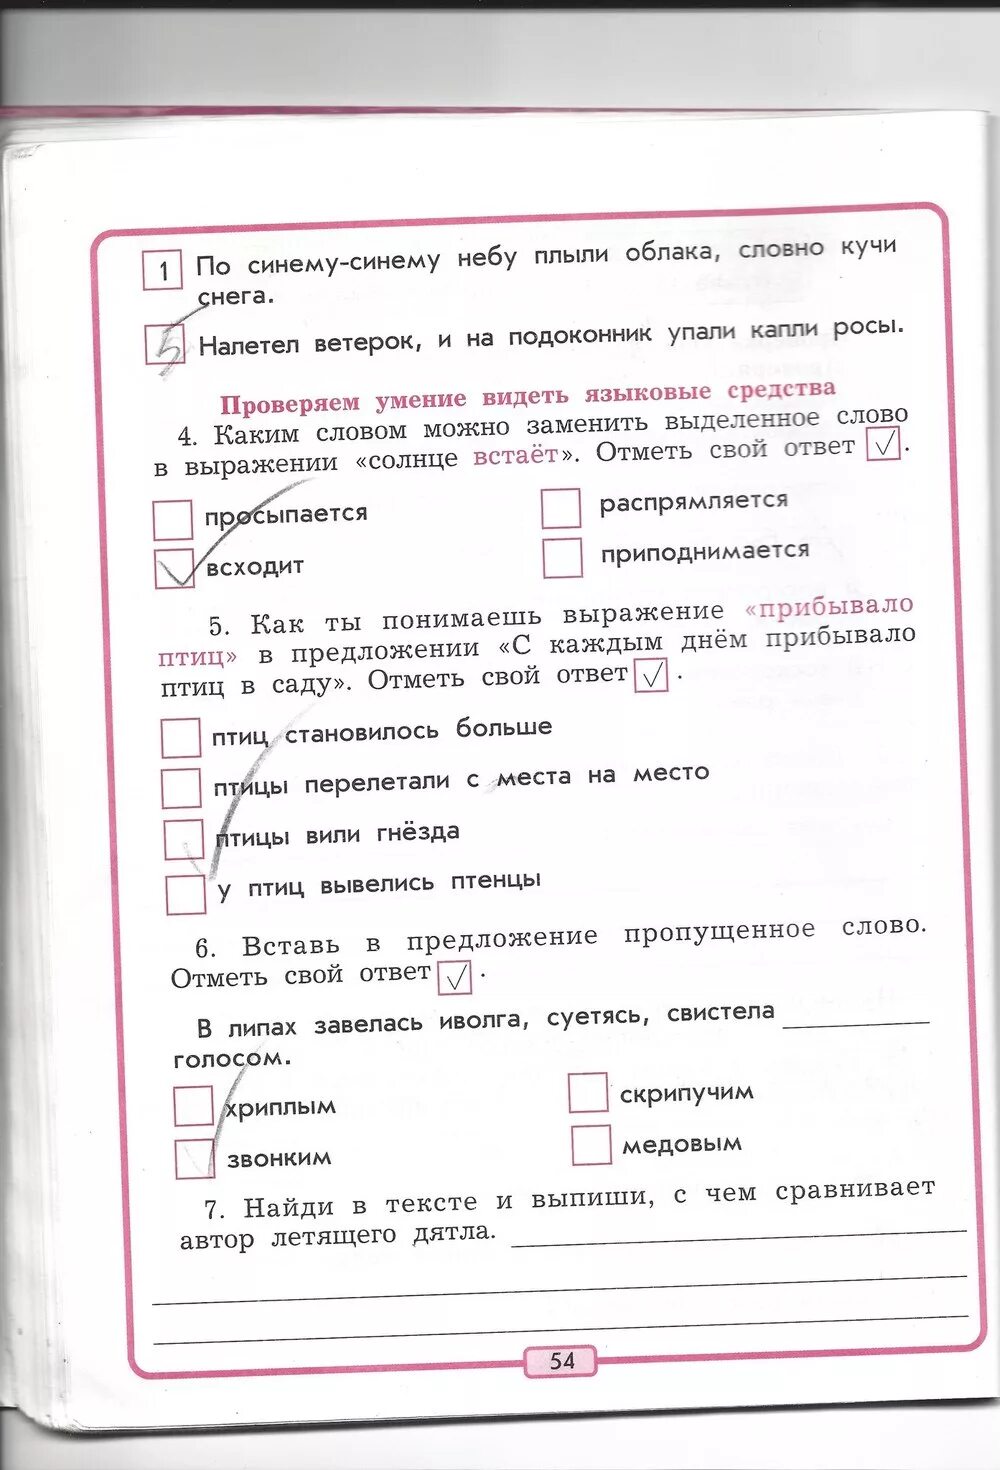 1 По синему-синему небу плыли облака, словно кучи
снега.
5 Налетел ветерок, и на подоконник упали капли росы.
Проверяем умение видеть языковые средства
4. Каким словом можно заменить выделенное слово
в выражении «солнце встаёт». Отметь свой ответ ✓.
просыпается распрямляется
✓ всходит приподнимается
5. Как ты понимаешь выражение «прибывало
птиц» в предложении «С каждым днём прибывало
птиц в саду». Отметь свой ответ ✓.
птиц становилось больше
птицы перелетали с места на место
птицы вили гнёзда
у птиц вывелись птенцы
6. Вставь в предложение пропущенное слово.
Отметь свой ответ ✓.
В липах завелась иволга, суетясь, свистела
голосом.
хриплым скрипучим
✓ звонким медовым
7. Найди в тексте и выпиши, с чем сравнивает
автор летящего дятла.
54